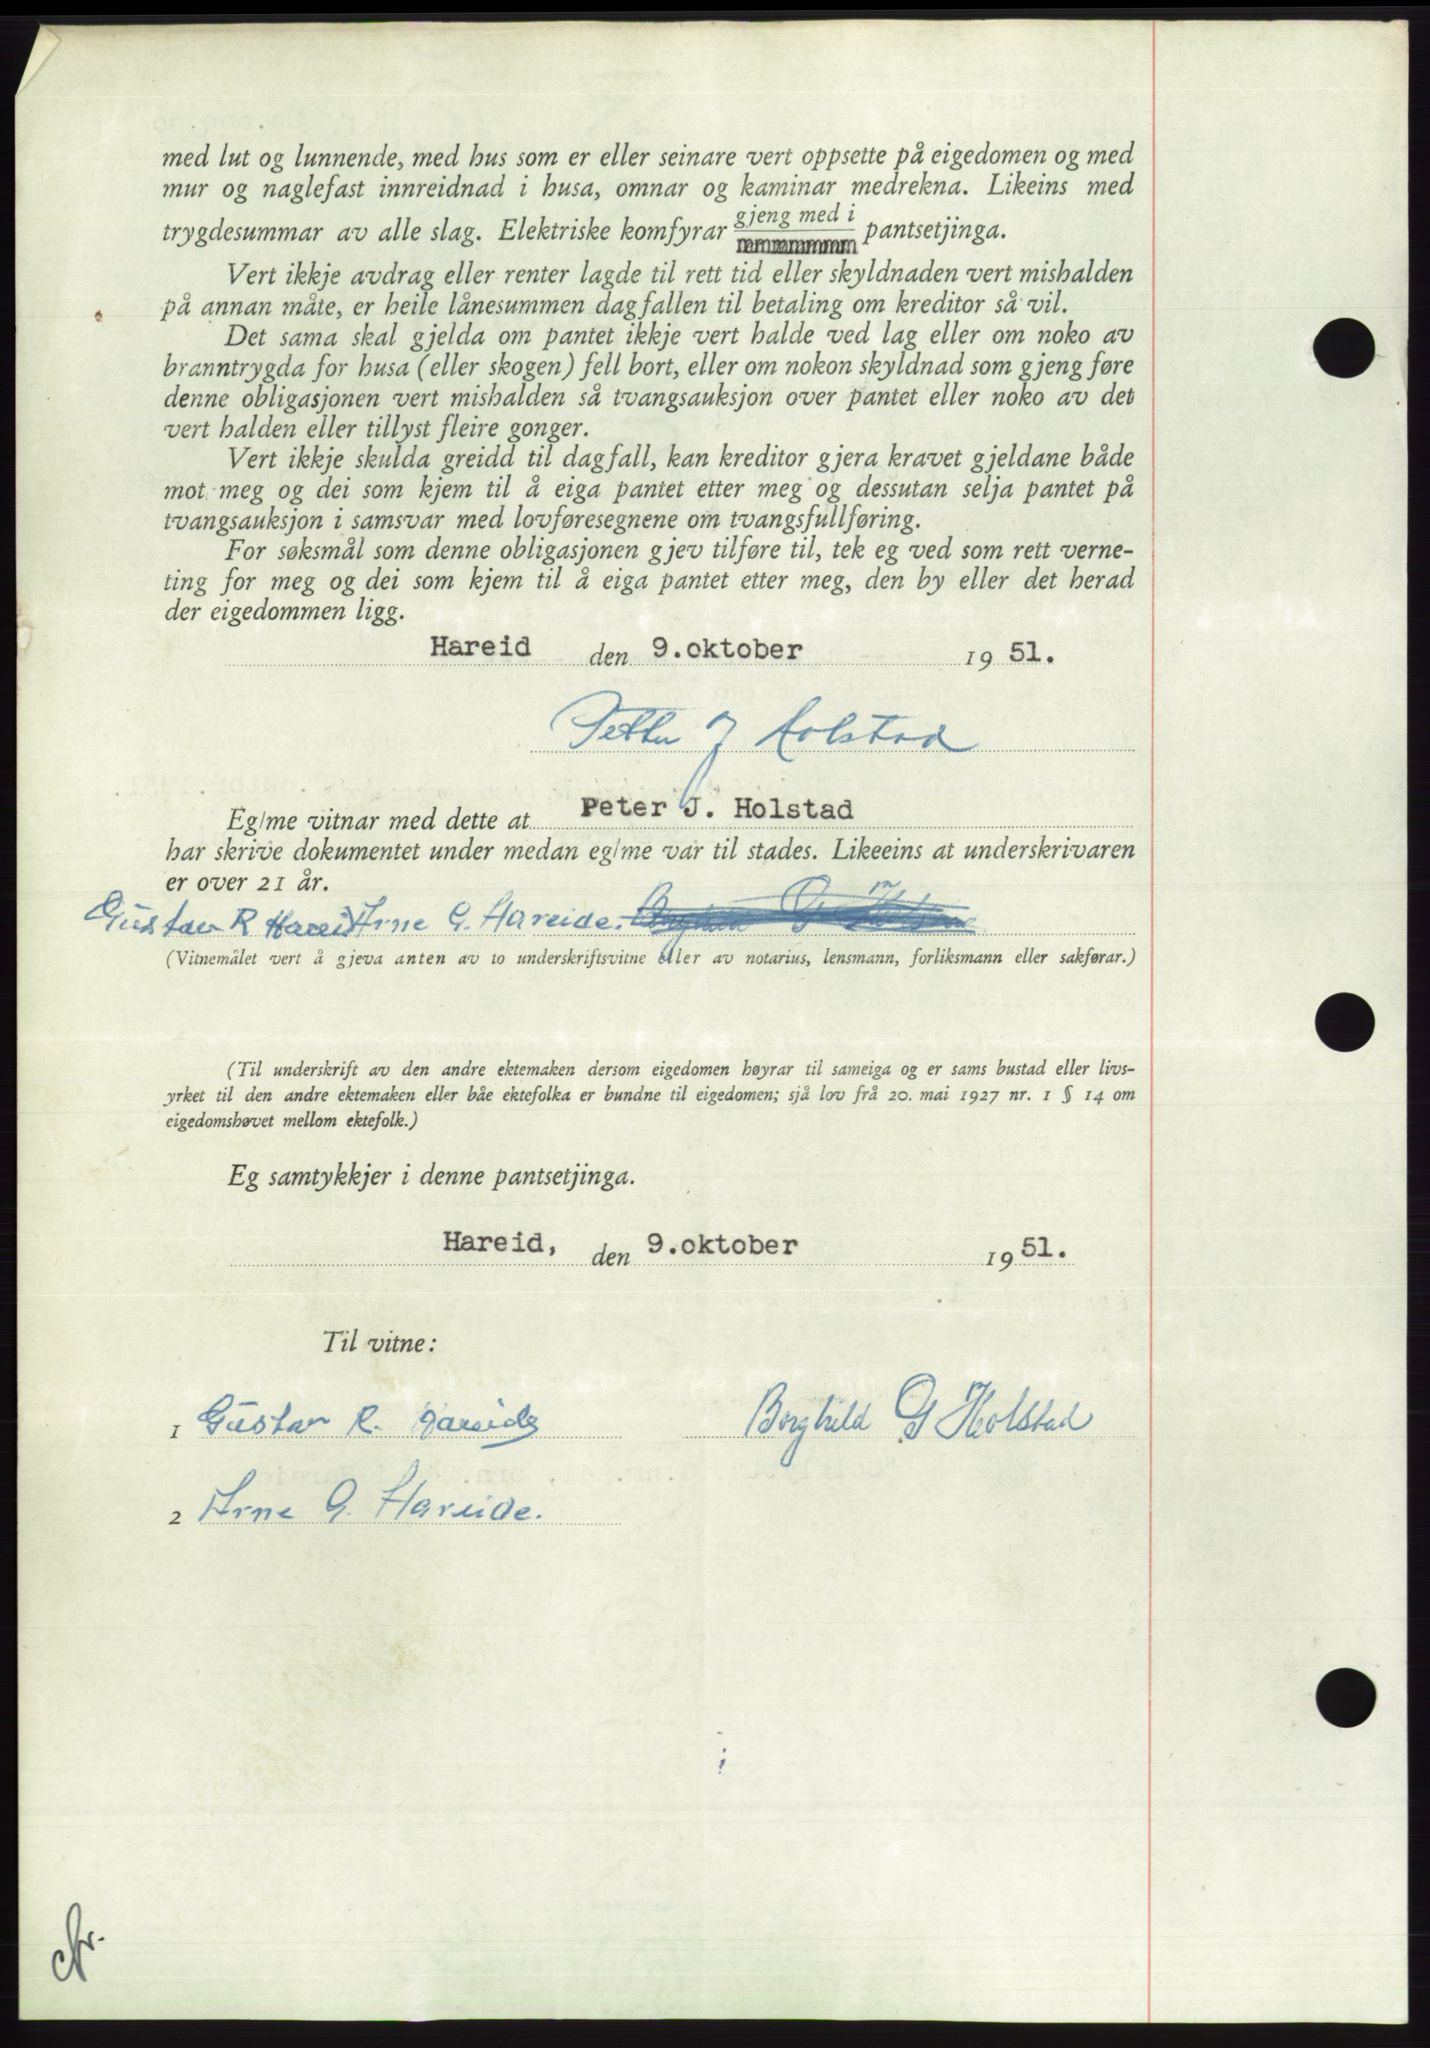 med lut og lunnende, med hus som er eller seinare vert oppsette på eigedomen og med
mur og naglefast innreidnad i husa, omnar og kaminar medrekna. Likeins med
trygdesummar av alle slag. Elektriske komfyrar gjeng med i pantsetjinga.
Vert ikkje avdrag eller renter lagde til rett tid eller skyldnaden vert mishalden
på annan måte, er heile lånesummen dagfallen til betaling om kreditor så vil.
Det sama skal gjelda om pantet ikkje vert halde ved lag eller om noko av
branntrygda for husa (eller skogen) fell bort, eller om nokon skyldnad som gjeng føre
denne obligasjonen vert mishalden så tvangsauksjon over pantet eller noko av det
vert halden eller tillyst fleire gonger.
Vert ikkje skulda greidd til dagfall, kan kreditor gjera kravet gjeldane både
mot meg og dei som kjem til å eiga pantet etter meg og dessutan selja pantet på
tvangsauksjon i samsvar med lovføresegnene om tvangsfullføring.
For søksmål som denne obligasjonen gjev tilføre til, tek eg ved som rett verne-
ting for meg og dei som kjem til å eiga pantet etter meg, den by eller det herad
der eigedommen ligg.
Hareid den 9.oktober 19 51.
Petter J Holstad
Eg/me vitnar med dette at Peter J. Holstad
har skrive dokumentet under medan eg/me var til stades. Likeeins at underskrivaren
er over 21 år.
Gustav R Hareide Arne G. Hareide. Borghild G Holstad
(Vitnemålet vert å gjeva anten av to underskriftsvitne eller av notarius, lensmann, forliksmann eller sakførar.)
(Til underskrift av den andre ektemaken dersom eigedomen høyrar til sameiga og er sams bustad eller livs-
yrket til den andre ektemaken eller båe ektefolka er bundne til eigedomen; sjå lov frå 20. mai 1927 nr. 1 § 14 om
eigedomshøvet mellom ektefolk.)
Eg samtykkjer i denne pantsetjinga.
Hareid, den 9.oktober 19 51.
Til vitne:
1 Gustav R. Hareide Borghild G Holstad
2 Arne G. Hareide.